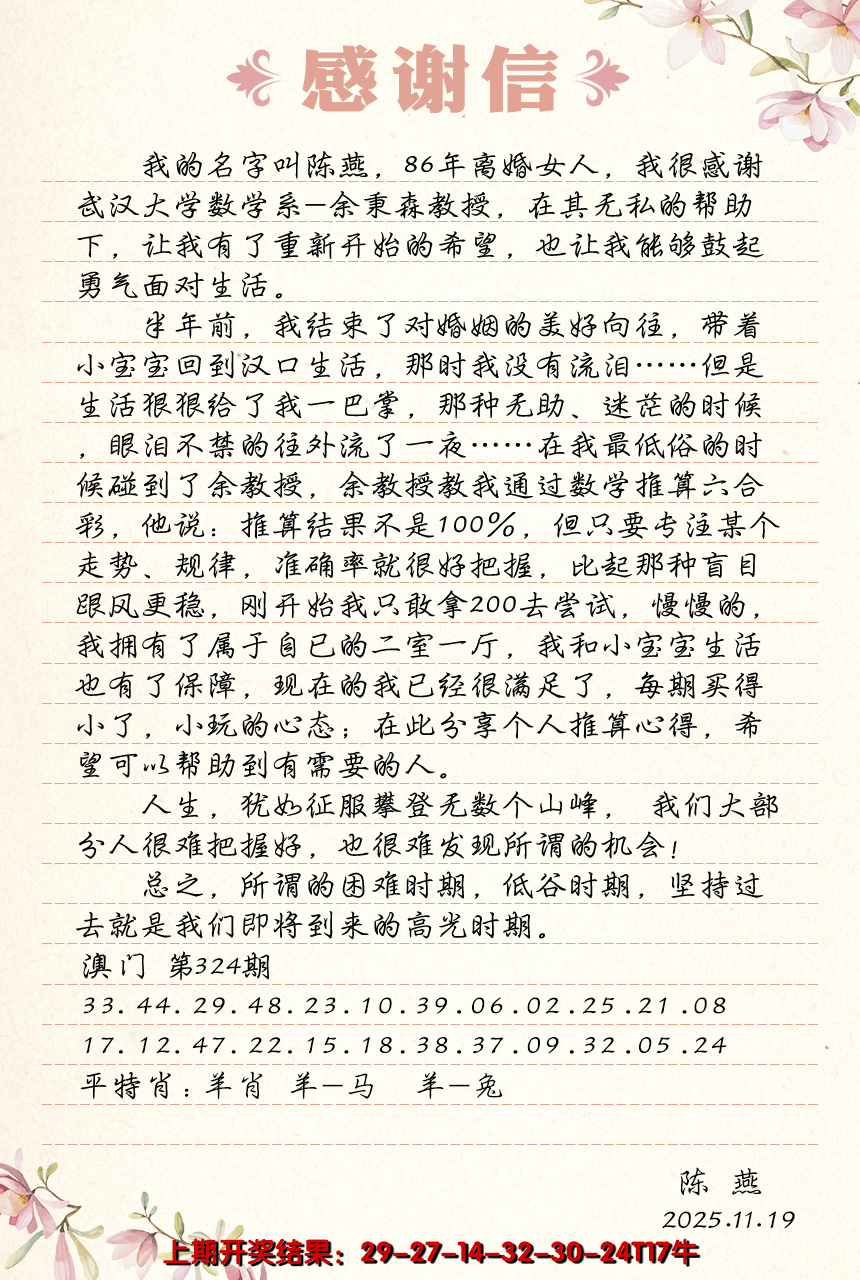 感谢信
我的名字叫陈燕，86年离婚女人，我很感谢
武汉大学数学系-余秉森教授，在其无私的帮助
下，让我有了重新开始的希望，也让我能够鼓起
勇气面对生活。
半年前，我结束了对婚姻的美好向往，带着
小宝宝回到汉口生活，那时我没有流泪……但是
生活狠狠给了我一巴掌，那种无助、迷茫的时候
，眼泪不禁的往外流了一夜……在我最低俗的时
候碰到了余教授，余教授教我通过数学推算六合
彩，他说：推算结果不是100%，但只要专注某个
走势、规律，准确率就很好把握，比起那种盲目
跟风更稳，刚开始我只敢拿200去尝试，慢慢的，
我拥有了属于自已的二室一厅，我和小宝宝生活
也有了保障，现在的我已经很满足了，每期买得
小了，小玩的心态；在此分享个人推算心得，希
望可以帮助到有需要的人。
人生，犹如征服攀登无数个山峰， 我们大部
分人很难把握好，也很难发现所谓的机会！
总之，所谓的困难时期，低谷时期，坚持过
去就是我们即将到来的高光时期。
澳门 第324期
33.44.29.48.23.10.39.06.02.25.21.08
17.12.47.22.15.18.38.37.09.32.05.24
平特肖：羊肖 羊-马 羊-兔
陈 燕
2025.11.19
上期开奖结果：29-27-14-32-30-24T17牛